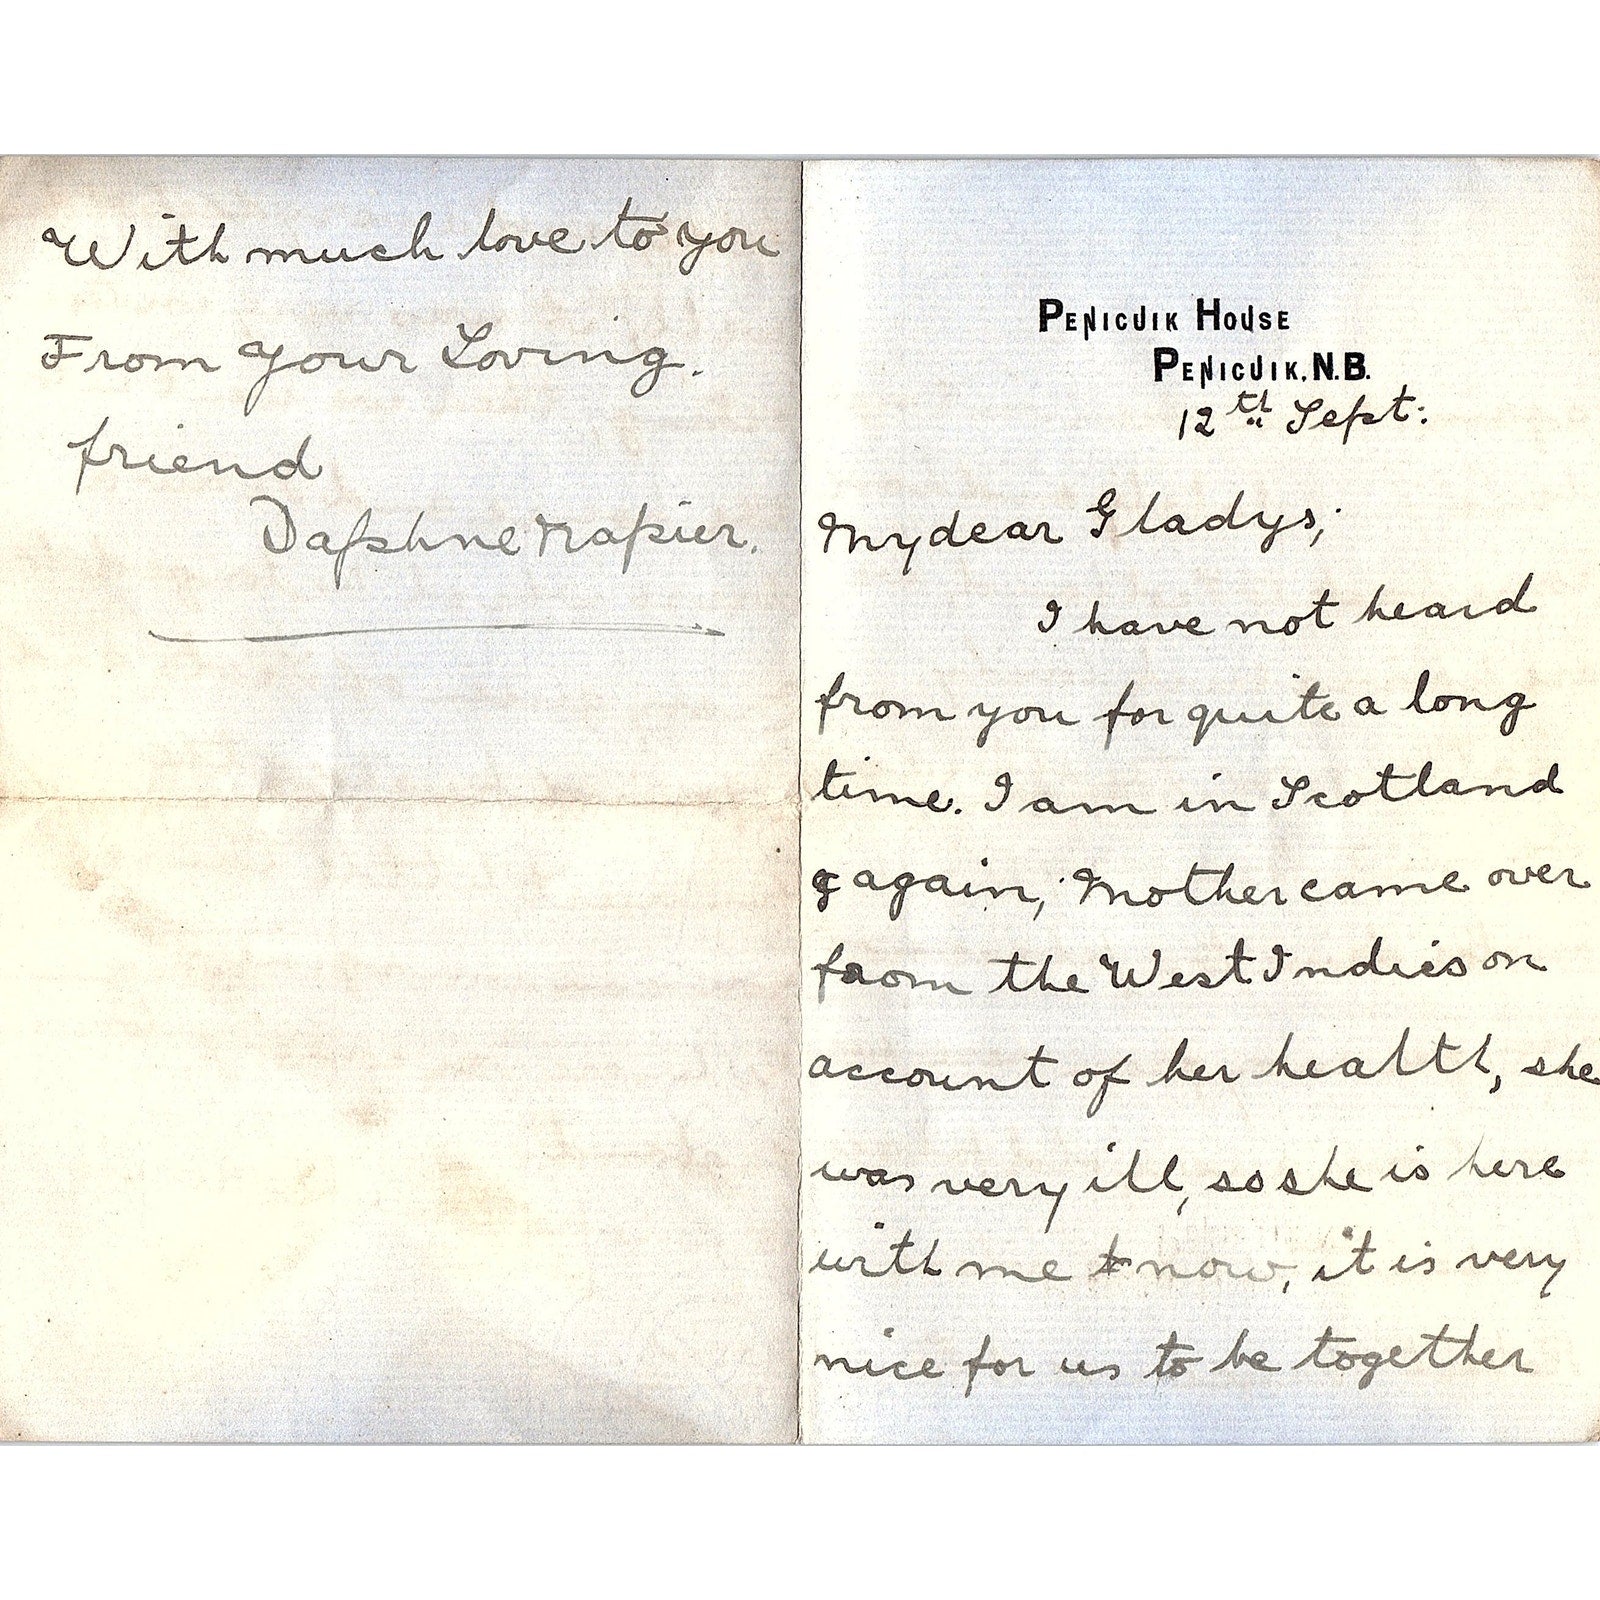 PENICUIK HOUSE
PENICUIK. N.B.
12th Sept:
My dear Gladys,
I have not heard
from you for quite a long
time. I am in Scotland
again, Mother came over
from the West Indies on
account of her health, she
was very ill, so she is here
with me now, it is very
nice for us to be together
With much love to you
From your Loving.
friend
Daphne Napier.